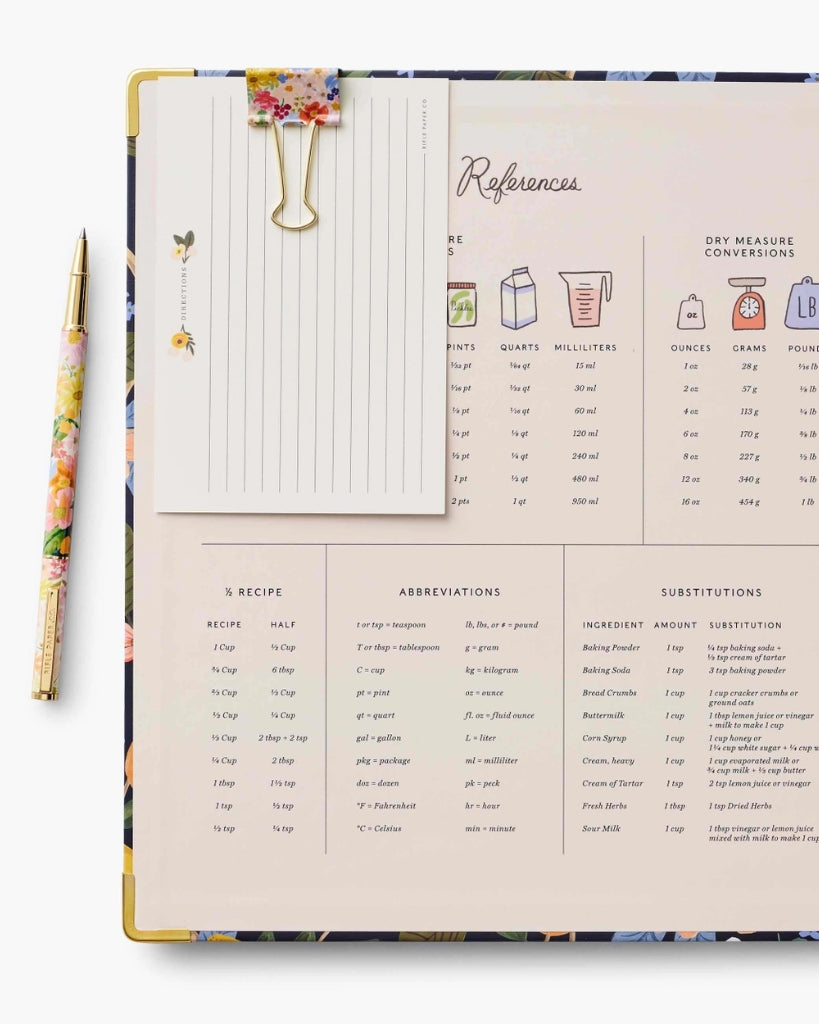 RIFLE PAPER CO.
DIRECTIONS
RIFLE PAPER CO.
References
RE
S
Pickles
PINTS QUARTS MILLILITERS
1/32 pt 1/64 qt 15 ml
1/16 pt 1/32 qt 30 ml
1/8 pt 1/16 qt 60 ml
1/4 pt 1/8 qt 120 ml
1/2 pt 1/4 qt 240 ml
1 pt 1/2 qt 480 ml
2 pts 1 qt 950 ml
DRY MEASURE
CONVERSIONS
OZ LB
OUNCES GRAMS POUND
1 oz 28 g 1/16 lb
2 oz 57 g 1/8 lb
4 oz 113 g 1/4 lb
6 oz 170 g 3/8 lb
8 oz 227 g 1/2 lb
12 oz 340 g 3/4 lb
16 oz 454 g 1 lb
½ RECIPE
RECIPE HALF
1 Cup ½ Cup
¾ Cup 6 tbsp
⅔ Cup ⅓ Cup
½ Cup ¼ Cup
⅓ Cup 2 tbsp + 2 tsp
¼ Cup 2 tbsp
1 tbsp 1½ tsp
1 tsp ½ tsp
½ tsp ¼ tsp
ABBREVIATIONS
t or tsp = teaspoon lb, lbs, or # = pound
T or tbsp = tablespoon g = gram
C = cup kg = kilogram
pt = pint oz = ounce
qt = quart fl. oz = fluid ounce
gal = gallon L = liter
pkg = package ml = milliliter
doz = dozen pk = peck
°F = Fahrenheit hr = hour
°C = Celsius min = minute
SUBSTITUTIONS
INGREDIENT AMOUNT SUBSTITUTION
Baking Powder 1 tsp ¼ tsp baking soda +
½ tsp cream of tartar
Baking Soda 1 tsp 3 tsp baking powder
Bread Crumbs 1 cup 1 cup cracker crumbs or
ground oats
Buttermilk 1 cup 1 tbsp lemon juice or vinegar
+ milk to make 1 cup
Corn Syrup 1 cup 1 cup honey or
1¼ cup white sugar + ¼ cup w
Cream, heavy 1 cup 1 cup evaporated milk or
¾ cup milk + ⅓ cup butter
Cream of Tartar 1 tsp 2 tsp lemon juice or vinegar
Fresh Herbs 1 tbsp 1 tsp Dried Herbs
Sour Milk 1 cup 1 tbsp vinegar or lemon juice
mixed with milk to make 1 cup